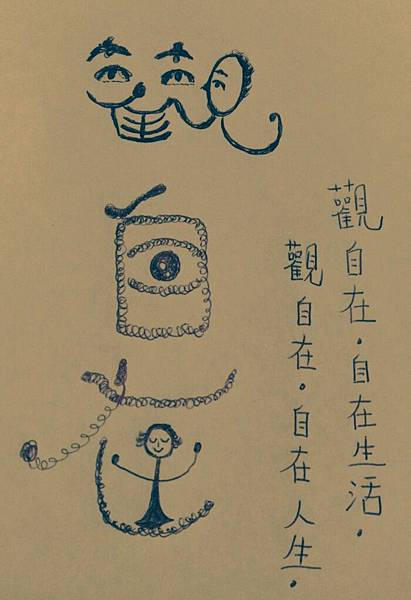 觀自在。自在生活。
觀自在。自在人生。
觀自在